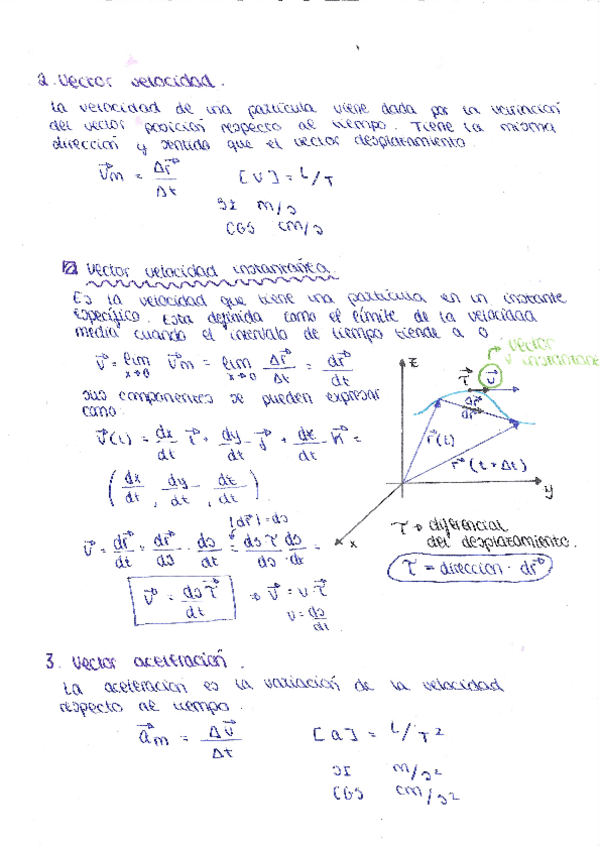 2. Vector velocidad.
La velocidad de una partícula viene dada por la variación
del vector posición respecto al tiempo. Tiene la misma
dirección y sentido que el vector desplazamiento.
v⃗m = Δr⃗/Δt [v] = L/T
SI m/s
CGS cm/s
Vector velocidad instantánea
Es la velocidad que tiene una partícula en un instante
específico. Esta definida como el límite de la velocidad
media cuando el intervalo de tiempo tiende a 0
vector
v⃗ instantane
v⃗ = lim x→0 v⃗m = lim x→0 Δr⃗/Δt = dr⃗/dt
z τ⃗ v⃗
Δr⃗
dr⃗
sus componentes se pueden expresar
como:
v⃗(t) = dx/dt i⃗ + dy/dt j⃗ + dz/dt k⃗ =
r⃗(t)
r⃗(t+Δt)
(dx/dt, dy/dt, dz/dt)
y
x
|dr⃗| = ds
v⃗ = dr⃗/dt = dr⃗/ds · ds/dt = ds τ⃗/ds ds/dt =
τ → diferencial
del desplazamiento.
τ = dirección · dr⃗
v⃗ = ds/dt τ⃗ ⇒ v⃗ = v · τ⃗
v = ds/dt
3. Vector aceleración.
La aceleración es la variación de la velocidad
respecto al tiempo.
a⃗m = Δv⃗/Δt [a] = L/T²
SI m/s²
CGS cm/s²